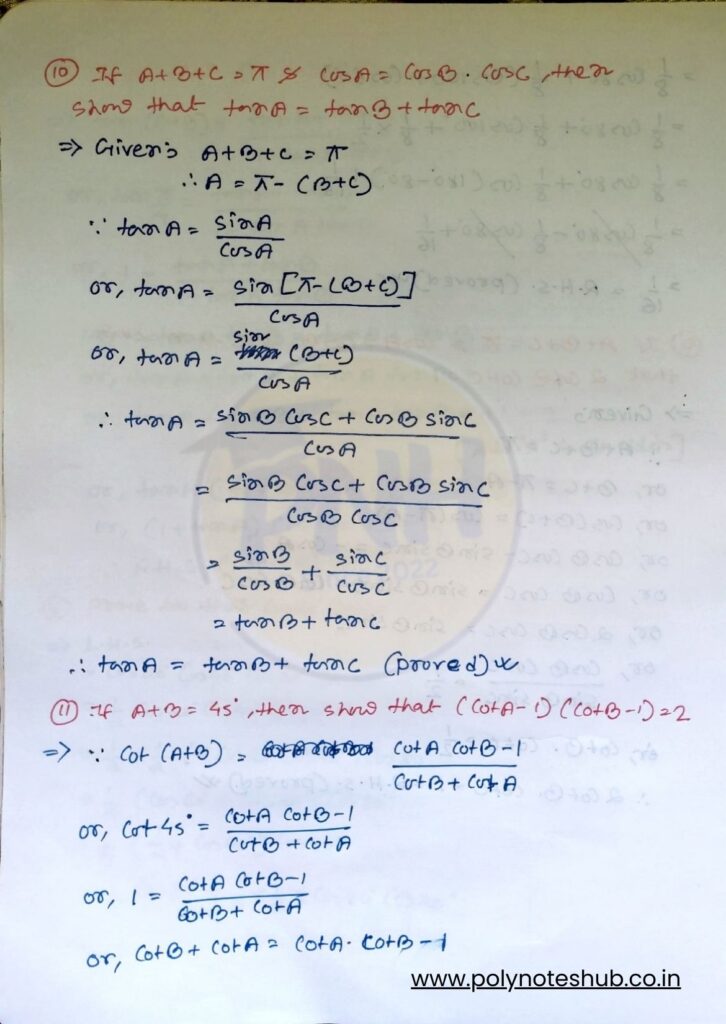 ⑩ If A+B+C = π & cosA = cosB · cosC, then
show that tanA = tanB + tanC
⇒ Given: A+B+C = π
∴ A = π - (B+C)
∵ tanA = sinA / cosA
or, tanA = sin[π-(B+C)] / cosA
or, tanA = sin(B+C) / cosA
∴ tanA = sinB cosC + cosB sinC / cosA
= sinB cosC + cosB sinC / cosB cosC
= sinB / cosB + sinC / cosC
= tanB + tanC
∴ tanA = tanB + tanC (proved)
⑪ If A+B = 45°, then show that (cotA-1)(cotB-1)=2
⇒ ∵ cot(A+B) = cotA cotB-1 / cotB + cotA
or, cot45° = cotA cotB-1 / cotB + cotA
or, 1 = cotA cotB-1 / cotB + cotA
or, cotB + cotA = cotA · cotB - 1
www.polynoteshub.co.in